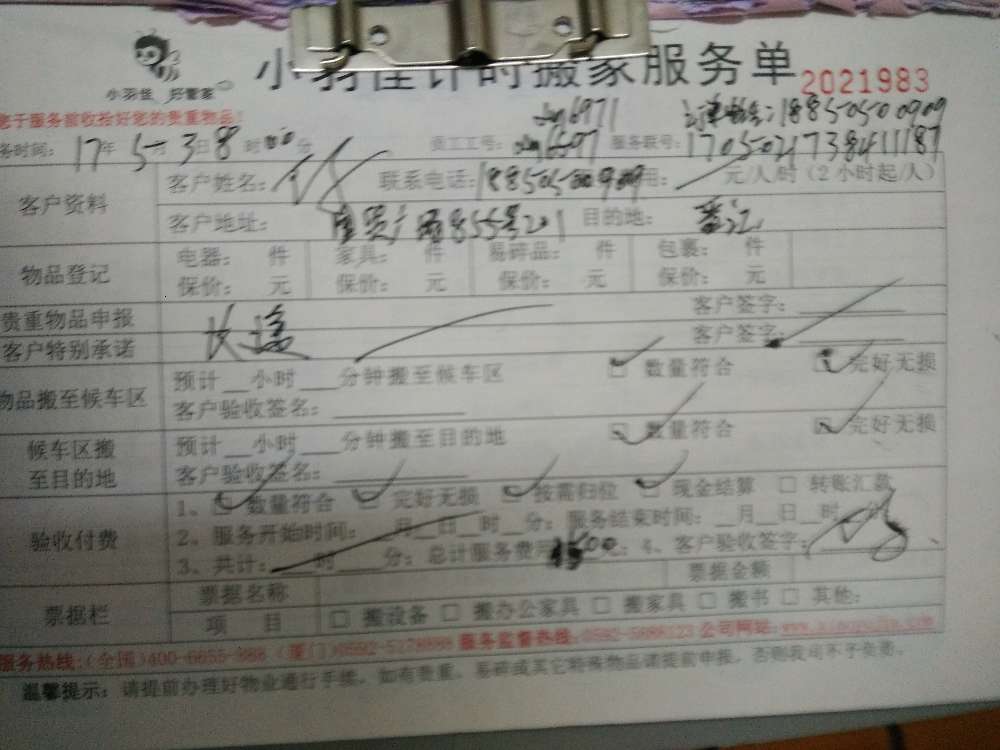 小羽佳计时搬家服务单 2021983
小羽佳 好管家
您于服务前收拾好您的贵重物品!
6971 18850500909
务时间: 17年 5月 3日 8时 分 员工工号: 6507 服务联号: 170502173841187
客户资料 客户姓名: 联系电话: 18850500909 用: 元/人/时(2小时起/人)
客户地址: 855号201 目的地:
物品登记 电器: 件 家具: 件 易碎品: 件 包裹: 件
保价: 元 保价: 元 保价: 元 保价: 元
贵重物品申报 客户签字:
客户特别承诺 长途 客户签字:
物品搬至候车区 预计__小时___分钟搬至候车区 数量符合 完好无损
客户验收签名:
候车区搬至目的地 预计__小时___分钟搬至目的地 数量符合 完好无损
客户验收签名:
验收付费 1、数量符合 完好无损 按需归位 现金结算 转账汇款
2、服务开始时间: __月__日__时__分; 服务结束时间: __月__日__时__分
3、共计:____时____分; 总计服务费用 元; 4、客户验收签字:
票据栏 票据名称 票据金额
项目 搬设备 搬办公家具 搬家具 搬书 其他:
服务热线:(全国)400-6655-888 (厦门)0592-5178899 服务监督热线:0592-5688123 公司网址:
温馨提示: 请提前办理好物业通行手续。如有贵重、易碎或其它特殊物品请提前申报, 否则我司不予免赔。